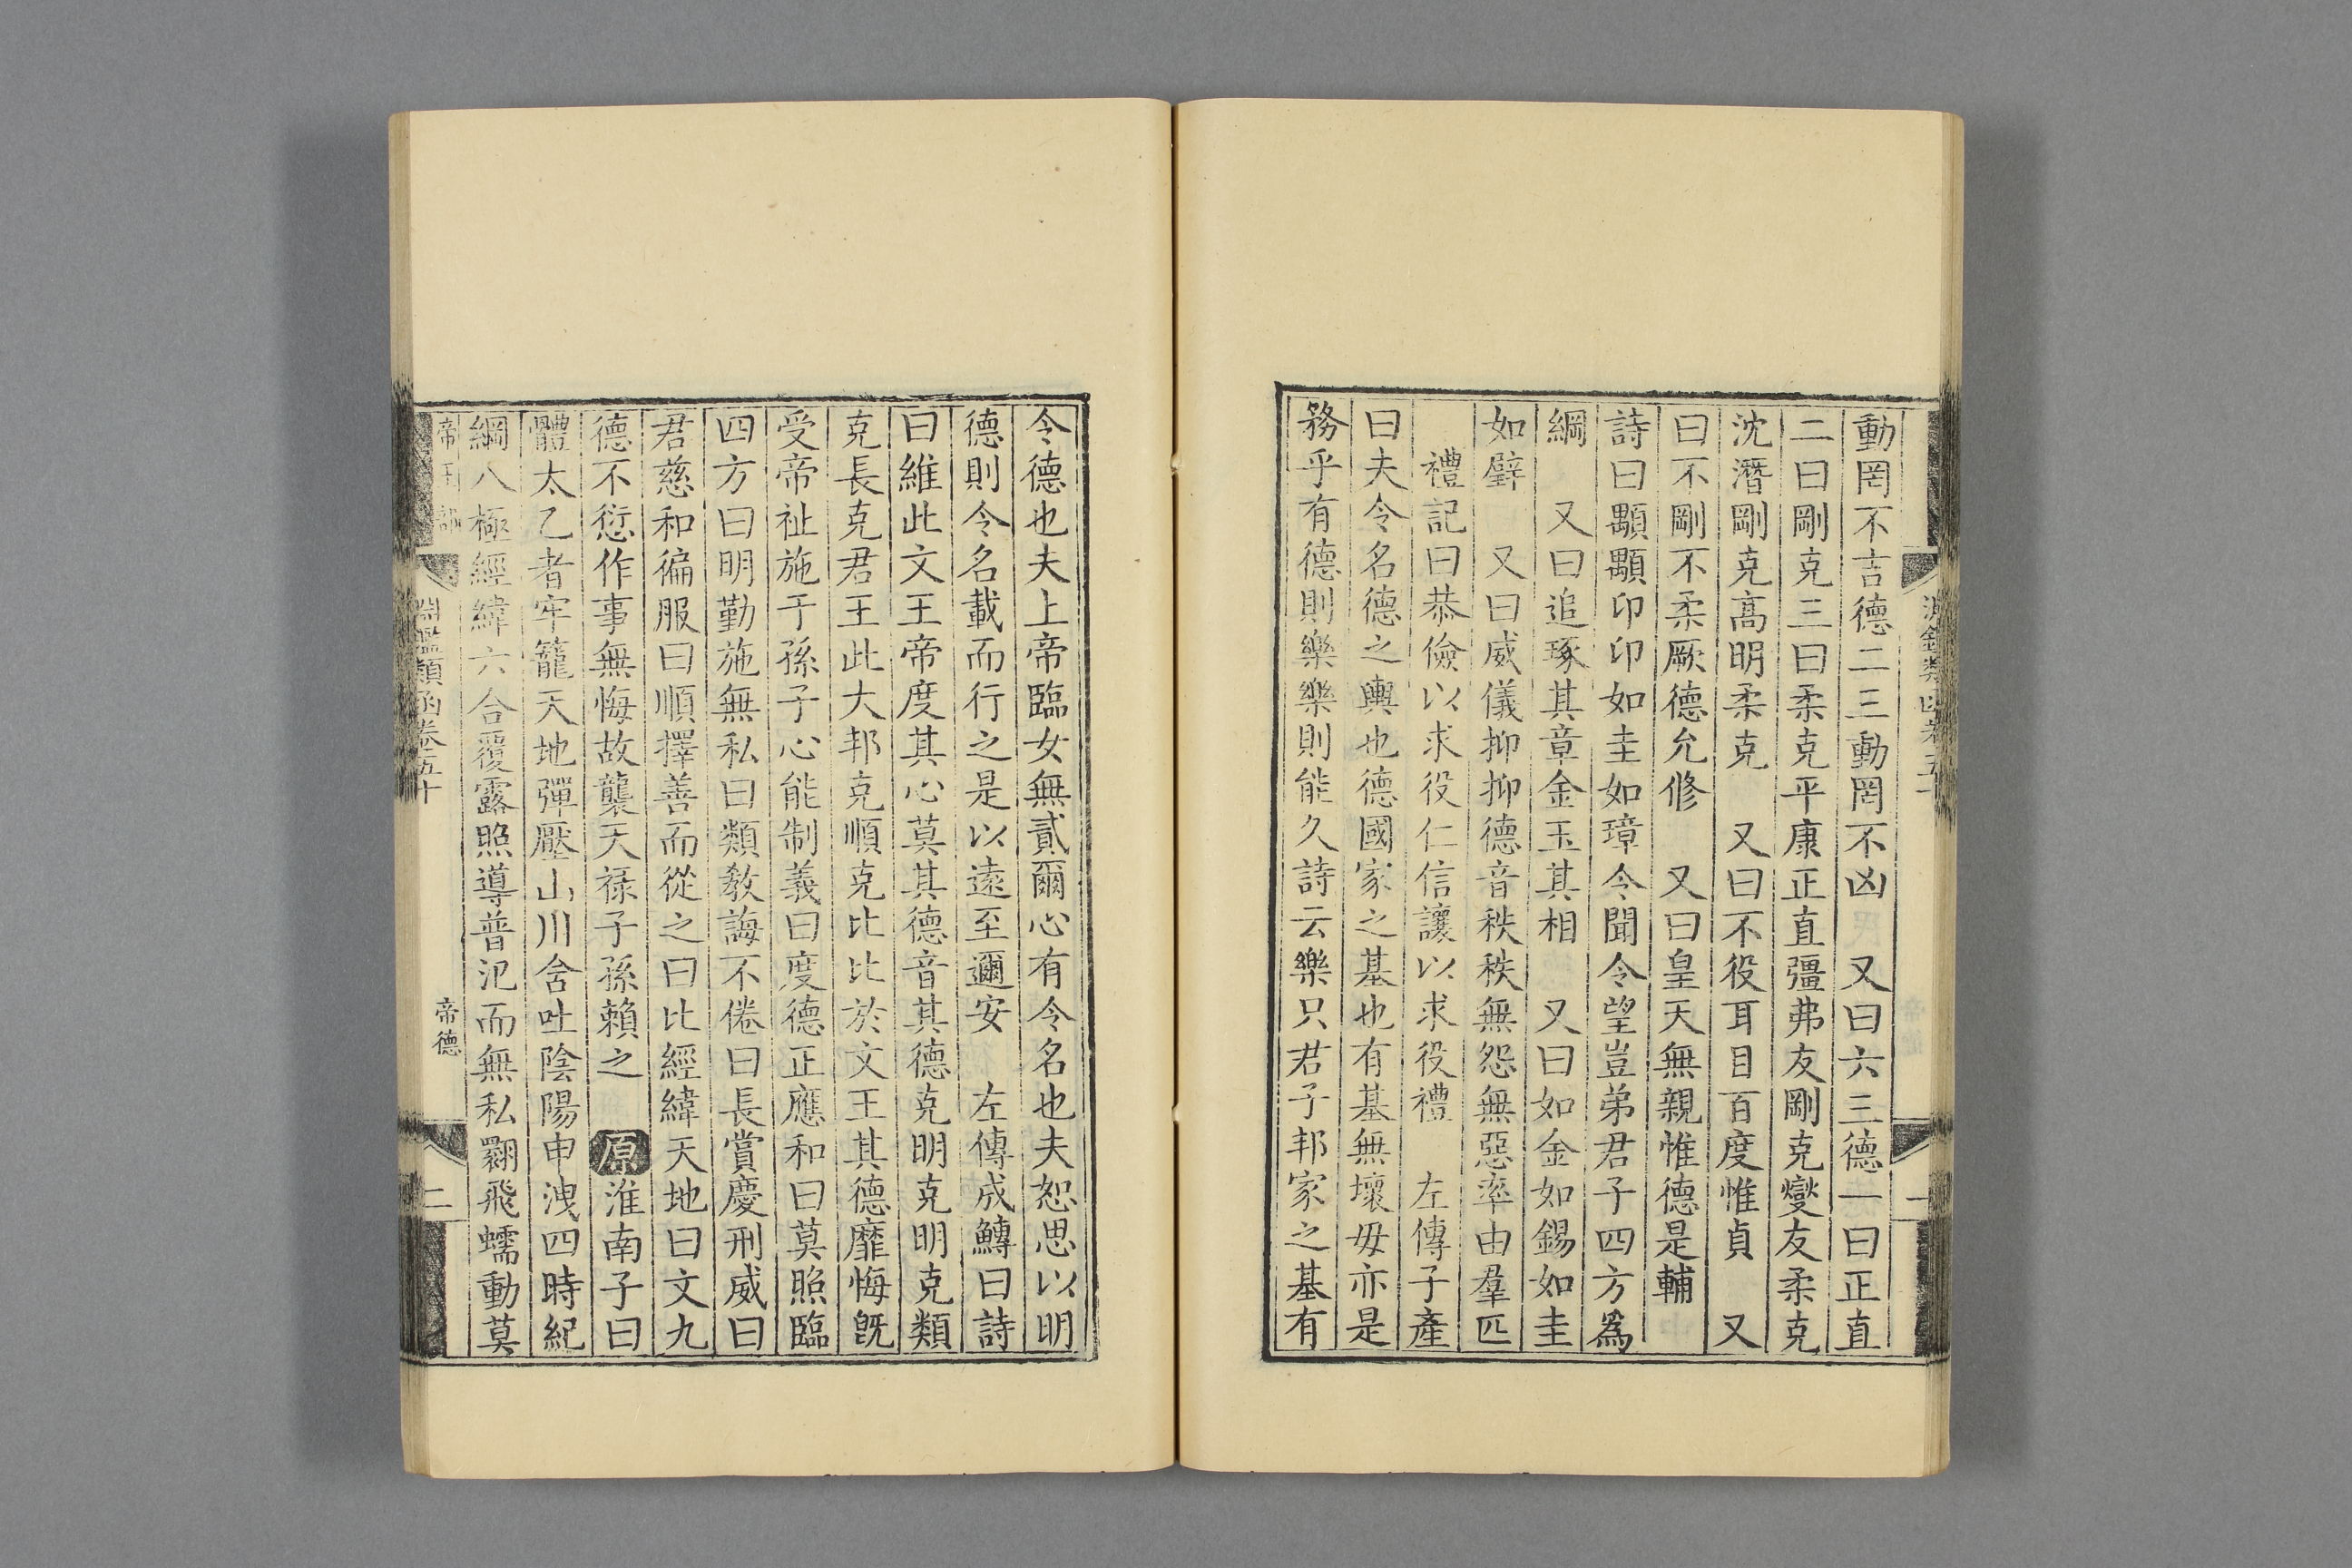 動罔不吉德二三動罔不凶　又曰六三德一曰正直
二曰剛克三曰柔克平康正直彊弗友剛克燮友柔克
沈潛剛克高明柔克　又曰不役耳目百度惟貞　又
曰不剛不柔厥德允修　又曰皇天無親惟德是輔
詩曰顒顒卬卬如圭如璋令聞令望豈弟君子四方爲
綱　又曰追琢其章金玉其相　又曰如金如錫如圭
如璧　又曰威儀抑抑德音秩秩無怨無惡率由羣匹
禮記曰恭儉以求役仁信讓以求役禮　左傳子產
曰夫令名德之輿也德國家之基也有基無壞毋亦是
務乎有德則樂樂則能久詩云樂只君子邦家之基有
令德也夫上帝臨女無貳爾心有令名也夫恕思以明
德則令名載而行之是以遠至邇安　左傳成鱄曰詩
曰維此文王帝度其心莫其德音其德克明克明克類
克長克君王此大邦克順克比比於文王其德靡悔旣
受帝祉施于孫子心能制義曰度德正應和曰莫照臨
四方曰明勤施無私曰類敎誨不倦曰長賞慶刑威曰
君慈和徧服曰順擇善而從之曰比經緯天地曰文九
德不愆作事無悔故襲天祿子孫賴之　原淮南子曰
體太乙者牢籠天地彈壓山川含吐陰陽申洩四時紀
綱八極經緯六合覆露照導普氾而無私翾飛蠕動莫
帝王部
淵鑑類函卷五十
帝德
二